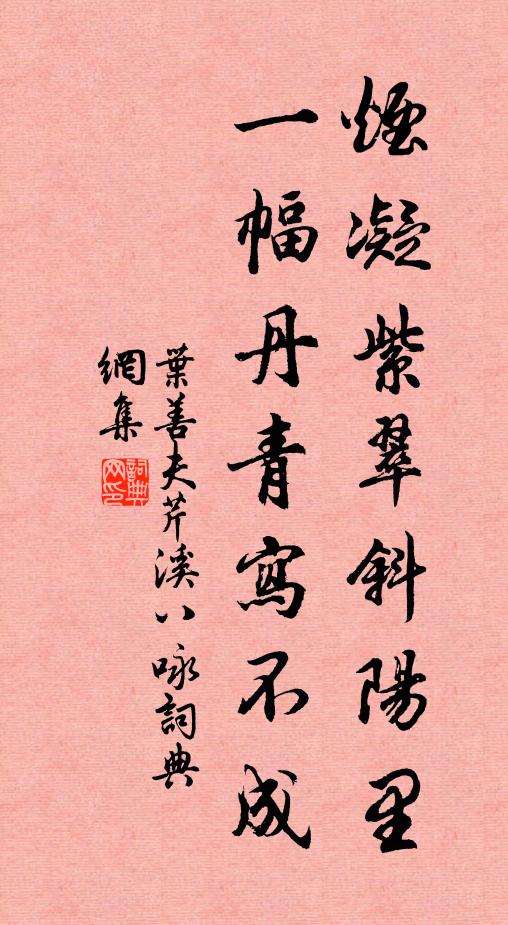 煙凝紫翠斜陽里
一幅丹青寫不成
葉善夫芹溪八咏詞典
網集
詞典
网印